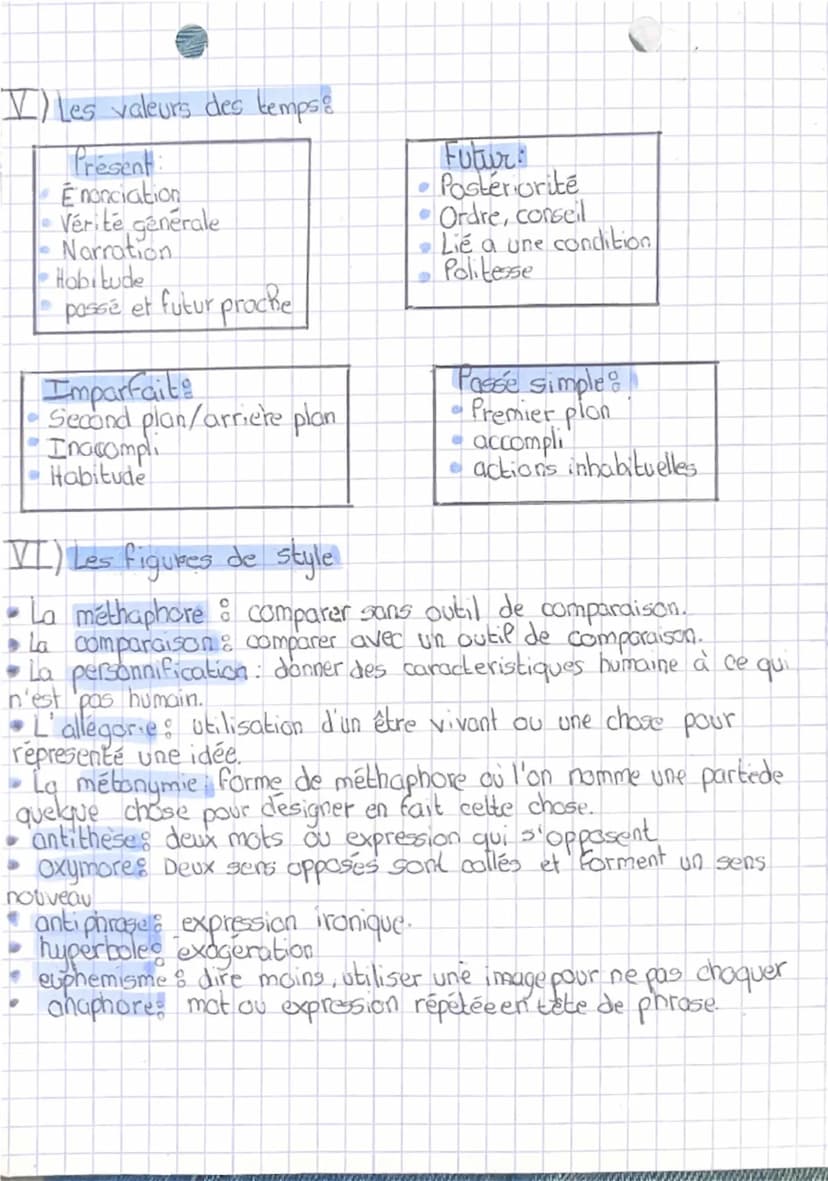 V) Les valeurs des temps :
Présent :
• Énonciation
• Vérité générale
• Narration
• Habitude
• passé et futur proche
Futur :
• Postériorité
• Ordre, conseil
• Lié a une condition
• Politesse
Imparfait :
• Second plan/arrière plan
• Inaccompli
• Habitude
Passé simple :
• Premier plan
• accompli
• actions inhabituelles
VI) Les figures de style
• La méthaphore : comparer sans outil de comparaison.
• La comparaison : comparer avec un outil de comparaison.
• La personnification : donner des caracteristiques humaine à ce qui
n'est pas humain.
• L'allégorie : utilisation d'un être vivant ou une chose pour
répresenté une idée.
• La métonymie : forme de méthaphore où l'on nomme une partie de
quelque chose pour désigner en fait cette chose.
• antithèse : deux mots ou expression qui s'opposent
• oxymore : Deux sens opposés sont collés et forment un sens
nouveau
• antiphrase : expression ironique.
• hyperbole : exagération
• euphemisme : dire moins, utiliser une image pour ne pas choquer
• anaphore : mot ou expression répétée en tête de phrase.